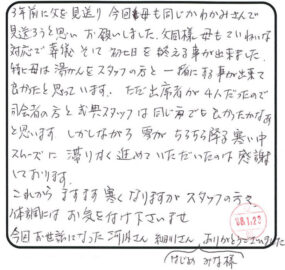 3年前に父を見送り 今回母も同じかわかみさんで
見送ろうと思い お願いしました。父同様 母もていねいな
対応で 葬儀 そして 初七日を 終える事が出来ました。
特に母は 湯かんをスタッフの方と 一緒にする事が出来て
良かったと思っています。ただ出席者が 4人だったので
司会者の方と 式典スタッフは 同じ方でも良かったかなぁ
と思います しかしながら 雪が ちらちら降る 寒い中
スムーズに 滞りなく 進めて いただいたのは 感謝
しております。
これから ますます 寒くなりますが スタッフの方々
体調には お気を付け下さいませ
今回お世話になった 河内さん 細川さん ありがとうございました
はじめ みな様